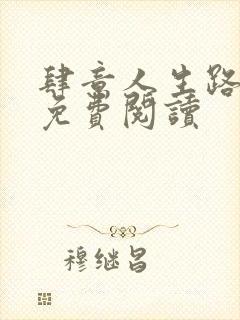 肆意人生路
免費閱讀
穆继昌